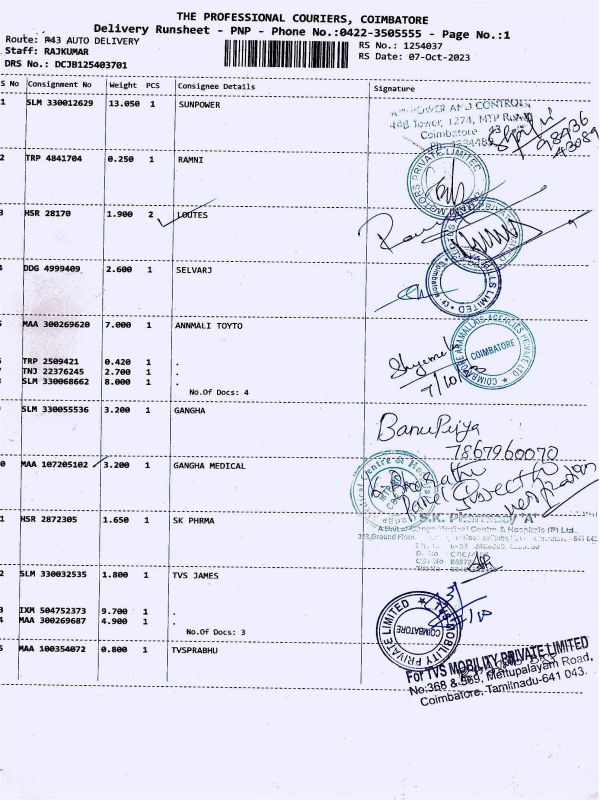 THE PROFESSIONAL COURIERS, COIMBATORE
Delivery Runsheet - PNP - Phone No.:0422-3505555 - Page No.:1
Route: P43 AUTO DELIVERY
Staff: RAJKUMAR
RS No.: 1254037
DRS No.: DCJB125403701
RS Date: 07-Oct-2023
S No Consignment No Weight PCS Consignee Details Signature
1 SLM 330012629 13.050 1 SUNPOWER
POWER AND CONTROL
Tower, 1274, MTP Road
Coimbatore 43
98436
43089
2 TRP 4841704 0.250 1 RAMNI
MOTORS PRIVATE LIMITED
3 HSR 28170 1.900 2 LOUTES
4 DDG 4999409 2.600 1 SELVARJ
MILLS LIMITED
Coimbatore
5 MAA 300269620 7.000 1 ANNMALI TOYTO
COIMBATORE ANAMALLAIS AGENCIES PRIVATE LTD
COIMBATORE
7/10/
6 TRP 2509421 0.420 1 .
7 TNJ 22376245 2.700 1 .
8 SLM 330068662 8.000 1 .
No.Of Docs: 4
9 SLM 330055536 3.200 1 GANGHA
BanuPriya
7867960070
0 MAA 107205102 3.200 1 GANGHA MEDICAL
Medical Centre &
1 HSR 2872305 1.650 1 SK PHRMA
S.K. Pharmacy 'A'
A Unit of Ganga Medical Centre & Hospitals (P) Ltd.,
313, Ground Floor,
2 SLM 330032535 1.800 1 TVS JAMES
3 IXM 504752373 9.700 1 .
4 MAA 300269687 4.900 1 .
No.Of Docs: 3
TVS MOBILITY PRIVATE LIMITED
COIMBATORE
5 MAA 100354072 0.800 1 TVSPRABHU
For TVS MOBILITY PRIVATE LIMITED
No.368 & 369, Mettupalayam Road,
Coimbatore, Tamilnadu-641 043.